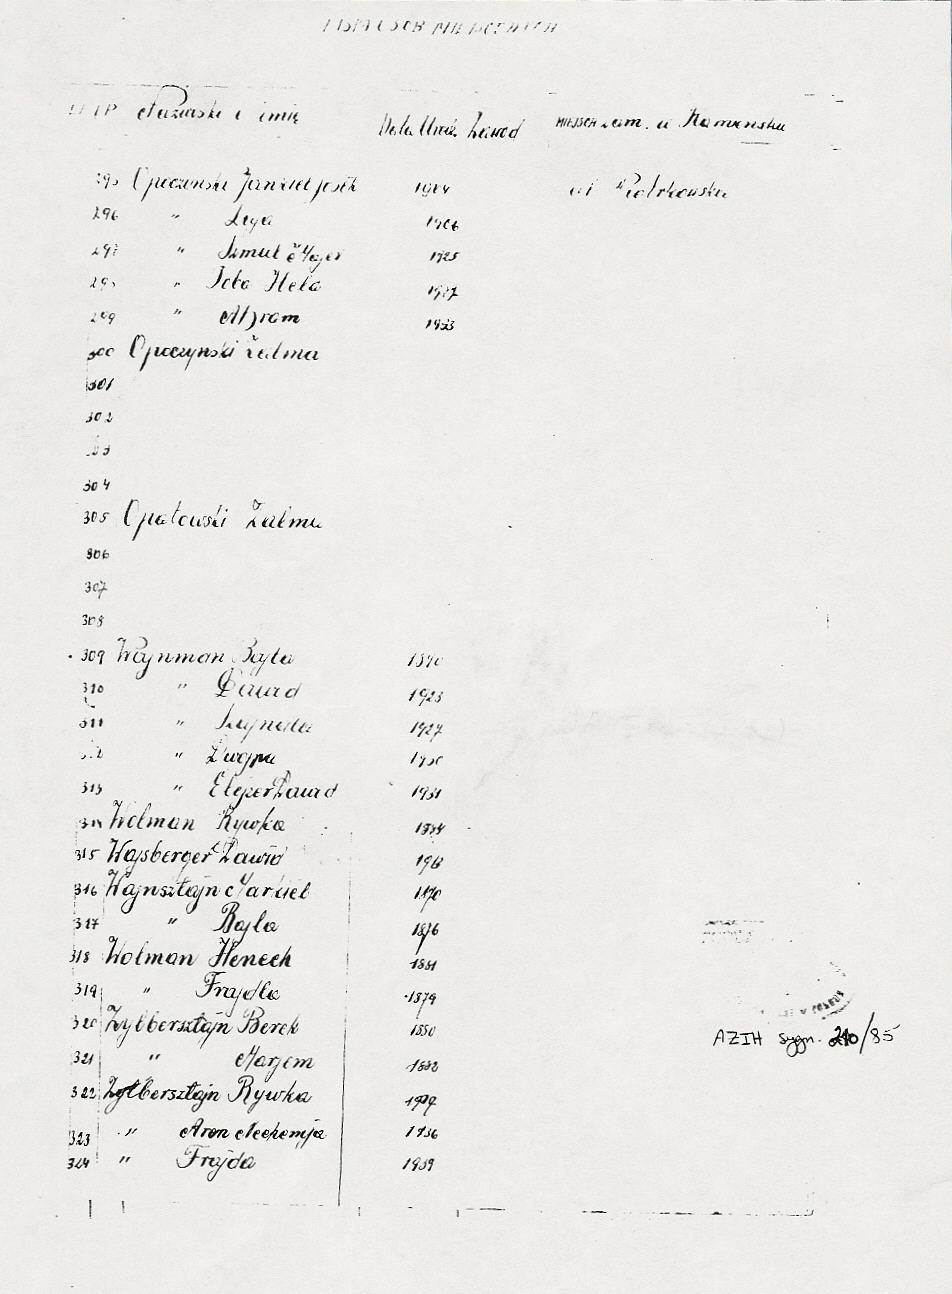 LISTA OSÓB MIEJSCOWYCH
L.P. Nazwiski i imię Data Urodz. Zawód MIEJSCE zam. w Kamińsku
295 Opoczynski Jankiel Josek 1904 ul Piotrkowska
296 " Liga 1906
297 " Szmul Majer 1925
298 " Toba Hela 1927
299 " Abram 1933
300 Opoczynski Zalma
301
302
303
304
305 Opatowski Zalma
306
307
308
309 Wajnman Bajla 1890
310 " Dawid 1923
311 " 1927
312 " Dwojra 1930
313 " Dawid 1931
314 Wolman Rywka 1884
315 Wajsberger Dawid
316 Wajnsztajn Markiel 1870
317 " Bajla 1876
318 Wolman Henech 1881
319 " Frajdla 1879
320 Zylbersztajn Berek 1880
321 " Marjem 1882
322 Zylbersztajn Rywka
323 " Aron Nechemja 1936
324 " Frajda 1939
AZIH sygn. 210/85